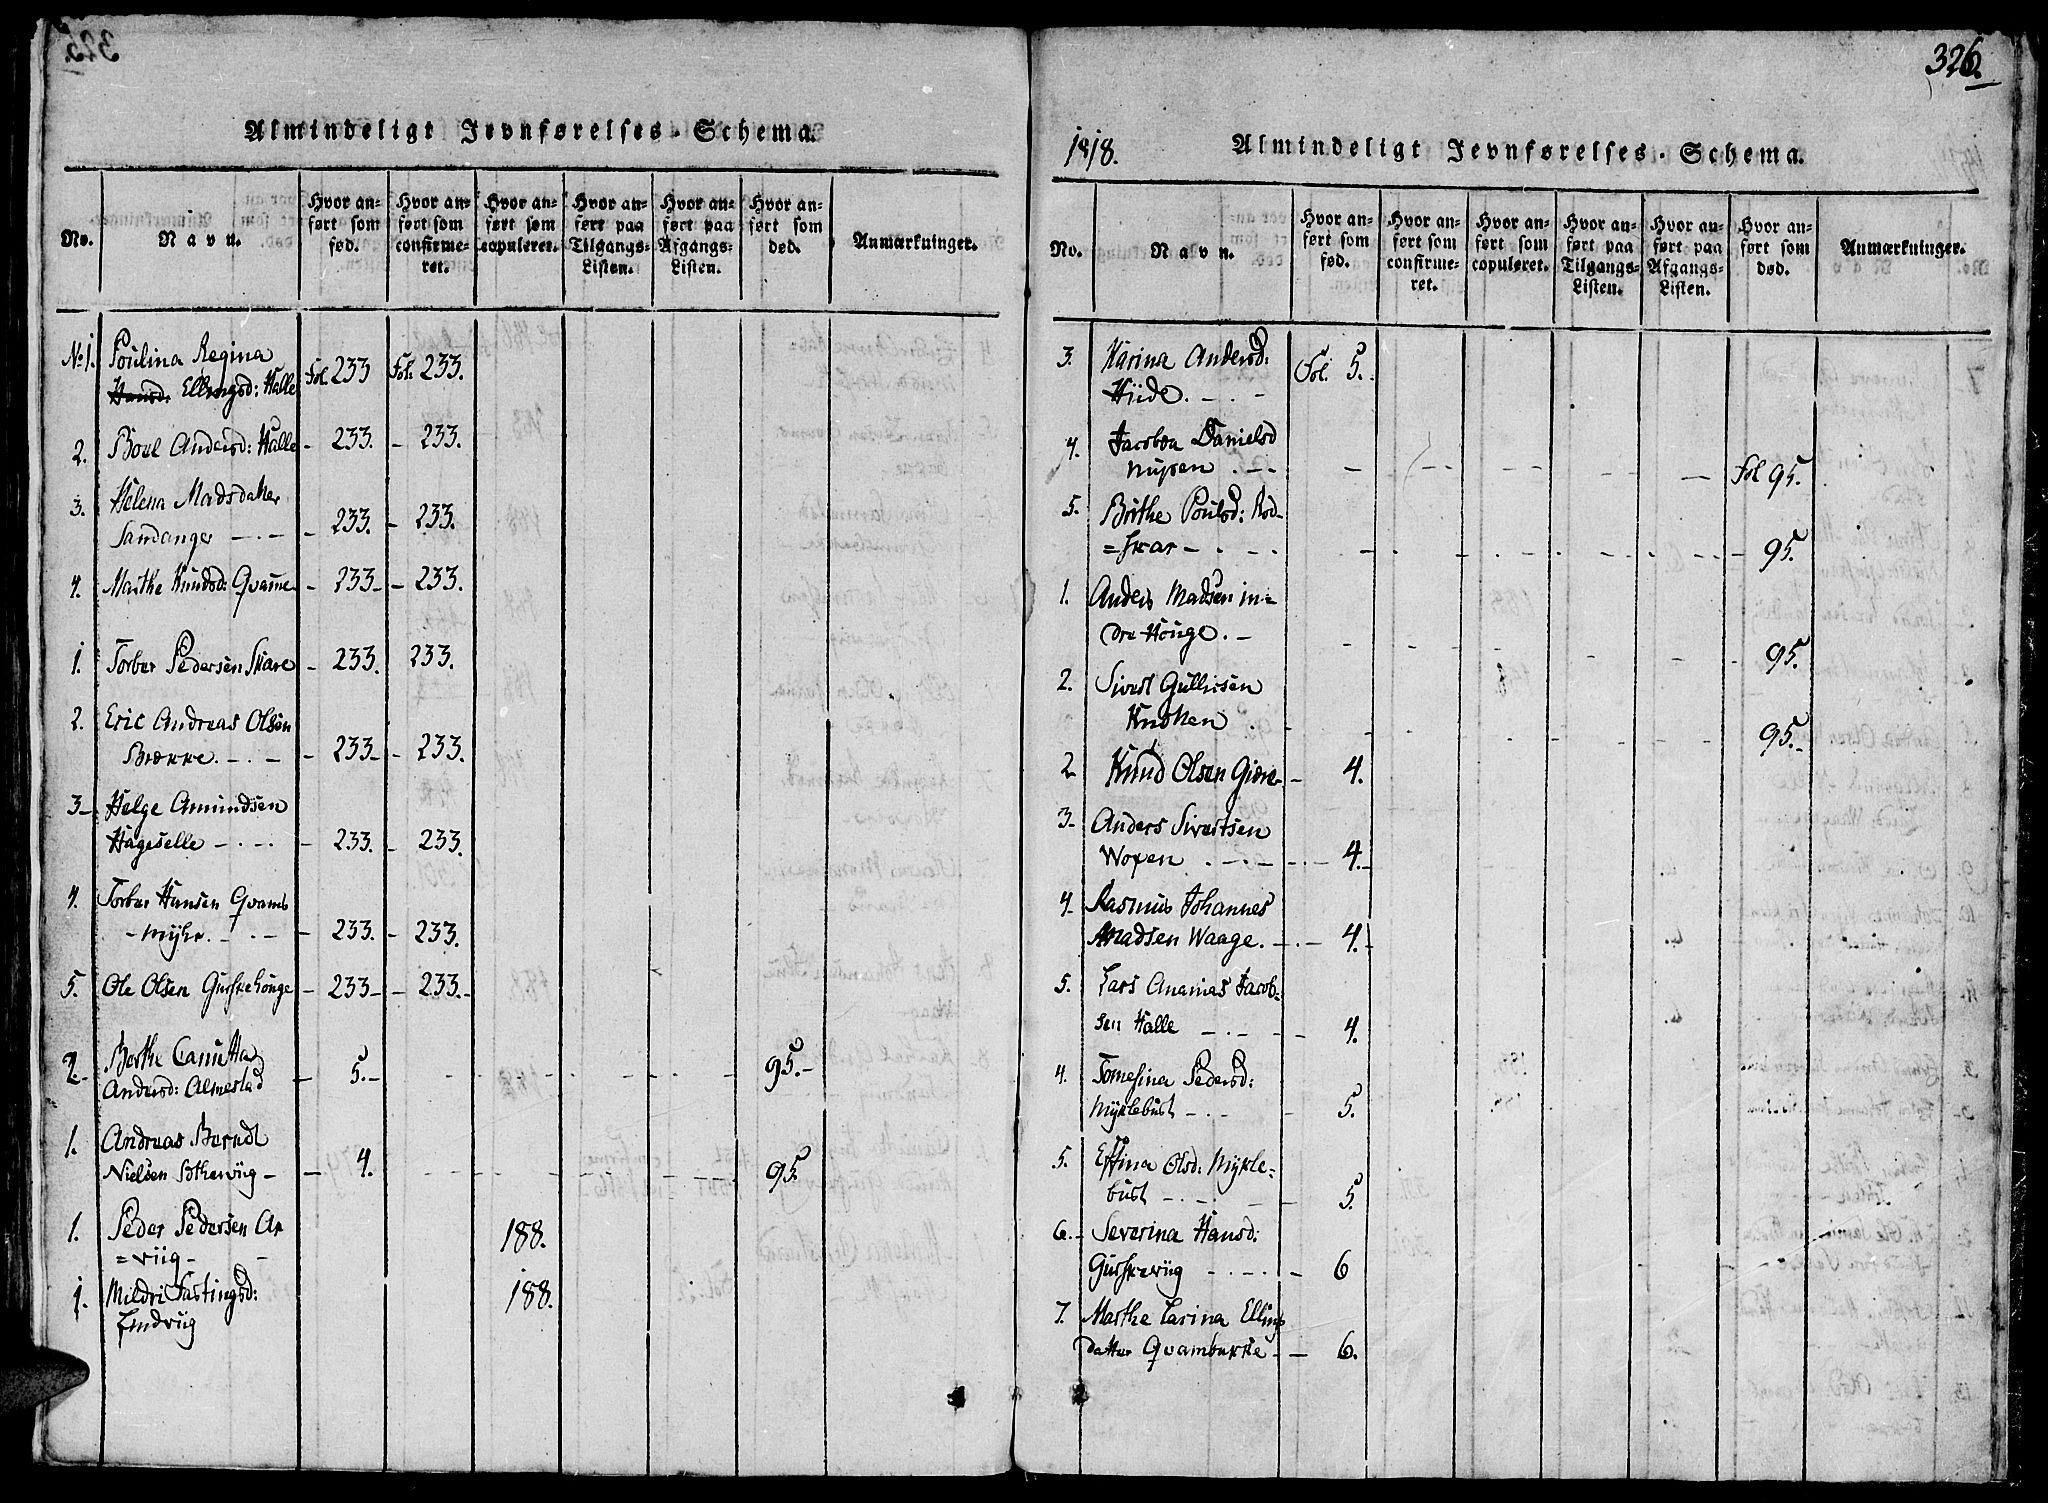 Almindeligt Jevnførelses-Schema.
No.
Navn.
Hvor anført som fød.
Hvor anført som confirmeret.
Hvor anført som copuleret.
Hvor anført paa Tilgangs-Listen.
Hvor anført paa Afgangs-Listen.
Hvor anført som død.
Anmærkninger.
No 1. Poulina Regina
Hansd: Ellingsd: Halle Fol. 233 Fol: 233.
2. Boel Andersd: Halle - 233. - 233.
3. Helena Madsdatter
Sandanger - . - - 233. - 233.
4. Marthe Knudsd: Qvame - 233 - - 233.
1. Torber Pedersen Skare - 233. 233.
2. Eric Andreas Olsen
Brække. - . - - 233 - - 233.
3 - Helge Amundsen
Hageselle - . - . - 233. - 233.
4. Torber Hansen Qvams
- myhr. - . - - 233. - 233.
5. Ole Olsen Gurskehouge - 233 - - 233. -
2. - Berthe Canutta
Andersd: Almestad - 5. - 95. -
1. Andreas Berndt
Nielsen Botherviig - - 4. 95.
1. Peder Pedersen Ar
= viig - - 188.
1. Mildri Fastingsd: 188.
Lindviig
326.
1818. Almindeligt Jevnførelses-Schema.
No.
Navn.
Hvor anført som fød.
Hvor anført som confirmeret.
Hvor anført som copuleret.
Hvor anført paa Tilgangs-Listen.
Hvor anført paa Afgangs-Listen.
Hvor anført som død.
Anmærkninger.
3. Karina Andersd: Fol. 5.
Hiide. - . -
4. Jacobea Danielsd
Myren . - . Fol 95.
5. Birthe Poulsd: Rød-
= skar - . - . 95.
1. Anders Madsen in=
dre Houge. - 95.
2. Sivert Gullicsen
Knotten 95. -
2 Knud Olsen Giære - 4.
3 - Anders Sivertsen
Woxen . - . - . - 4. -
4 - Rasmus Johannes
Madsen Waage. - . - 4. -
5. Lars Ananias Jacob-
sen Halle - . - - 4.
4. Tomesina Pedersd:
Myklebust - . - - 5.
5. Effina Olsd: Mykle-
bust - . - . - 5.
6. - Severina Hansd:
Gurskeviig - . - . - 6
7. Marthe Carina Ellings
datter Qvambække - - 6.